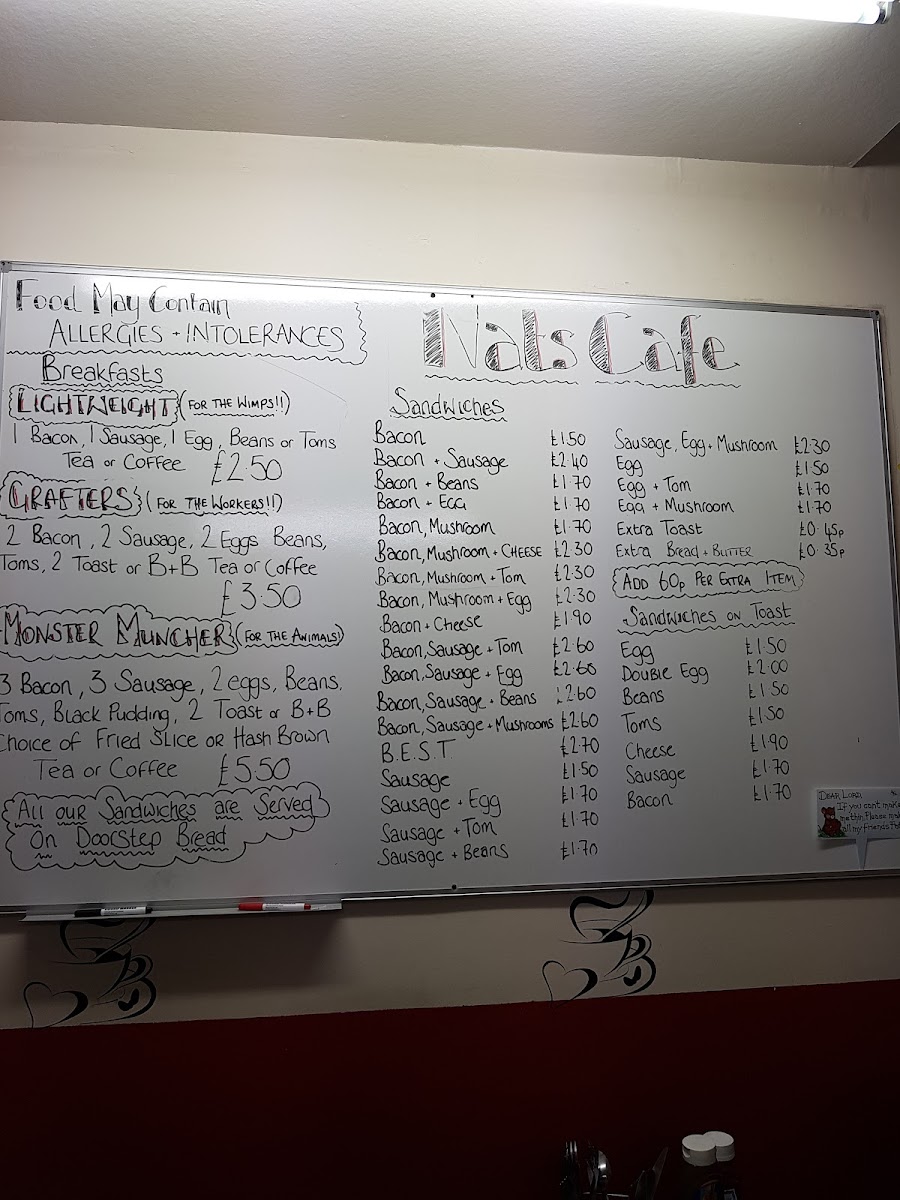 Food May Contain
ALLERGIES + INTOLERANCES
Breakfasts
LIGHTWEIGHT (FOR THE WIMPS!!)
1 Bacon, 1 Sausage, 1 Egg, Beans or Toms
Tea or Coffee £2.50
GRAFTERS (FOR THE WORKERS!!)
2 Bacon, 2 Sausage, 2 Eggs Beans,
Toms, 2 Toast or B+B Tea or Coffee
£3.50
MONSTER MUNCHER (FOR THE ANIMALS)
3 Bacon, 3 Sausage, 2 eggs, Beans,
Toms, Black Pudding, 2 Toast or B+B
Choice of Fried Slice or Hash Brown
Tea or Coffee £5.50
All our Sandwiches are Served
On Doorstep Bread
Nats Cafe
Sandwiches
Bacon £1.50
Bacon + Sausage £2.40
Bacon + Beans £1.70
Bacon + Egg £1.70
Bacon, Mushroom £1.70
Bacon, Mushroom + CHEESE £2.30
Bacon, Mushroom + Tom £2.30
Bacon, Mushroom + Egg £2.30
Bacon + Cheese £1.90
Bacon, Sausage + Tom £2.60
Bacon, Sausage + Egg £2.60
Bacon, Sausage + Beans £2.60
Bacon, Sausage + Mushrooms £2.60
B.E.S.T. £2.70
Sausage £1.50
Sausage + Egg £1.70
Sausage + Tom £1.70
Sausage + Beans £1.70
Sausage, Egg + Mushroom £2.30
Egg £1.50
Egg + Tom £1.70
Egg + Mushroom £1.70
Extra Toast £0.45p
Extra Bread + Butter £0.35p
ADD 60p PER EXTRA ITEM
Sandwiches on Toast
Egg £1.50
Double Egg £2.00
Beans £1.50
Toms £1.50
Cheese £1.90
Sausage £1.70
Bacon £1.70
DEAR LORD,
If you cant make
me thin, Please
all my friends